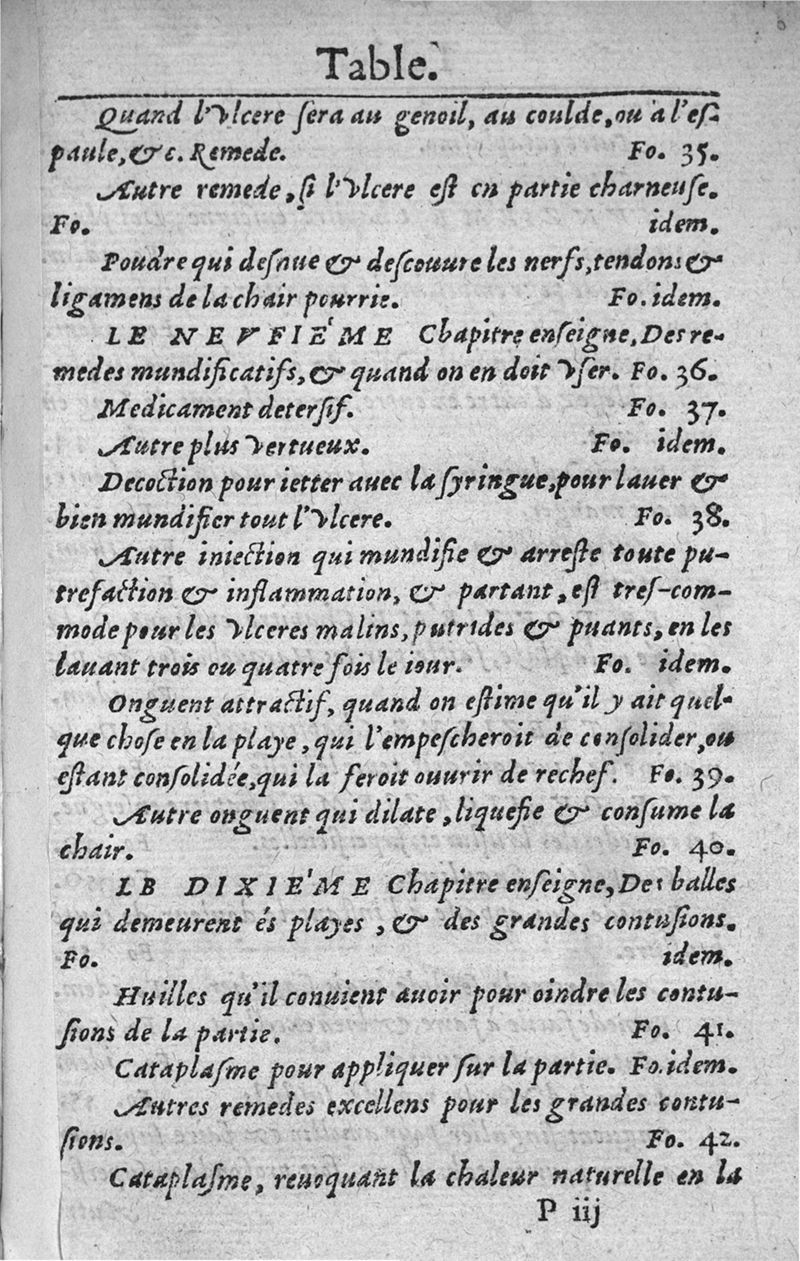 Table.
Quand l'Vlcere sera au genoil, au coulde, ou à l'es-
paule, & c. Remede. Fo. 35.
Autre remede, si l'Vlcere est en partie charneuse.
Fo. idem.
Poudre qui desnue & descouure les nerfs, tendons &
ligamens de la chair pourrie. Fo. idem.
LE NEVFIE'ME Chapitre enseigne, Des re-
medes mundificatifs, & quand on en doit Vser. Fo. 36.
Medicament detersif. Fo. 37.
Autre plus Vertueux. Fo. idem.
Decoction pour ietter auec la syringue, pour lauer &
bien mundifier tout l'Vlcere. Fo. 38.
Autre iniection qui mundifie & arreste toute pu-
trefaction & inflammation, & partant, est tres-com-
mode pour les Vlceres malins, putrides & puants, en les
lauant trois ou quatre fois le iour. Fo. idem.
Onguent attractif, quand on estime qu'il y ait quel-
que chose en la playe, qui l'empescheroit de consolider, ou
estant consolidée, qui la feroit ouurir de rechef. Fo. 39.
Autre onguent qui dilate, liquefie & consume la
chair. Fo. 40.
LE DIXIE'ME Chapitre enseigne, Des balles
qui demeurent és playes, & des grandes contusions.
Fo. idem.
Huilles qu'il conuient auoir pour oindre les contu-
sions de la partie. Fo. 41.
Cataplasme pour appliquer sur la partie. Fo. idem.
Autres remedes excellens pour les grandes contu-
sions. Fo. 42.
Cataplasme, reuoquant la chaleur naturelle en la
P iij